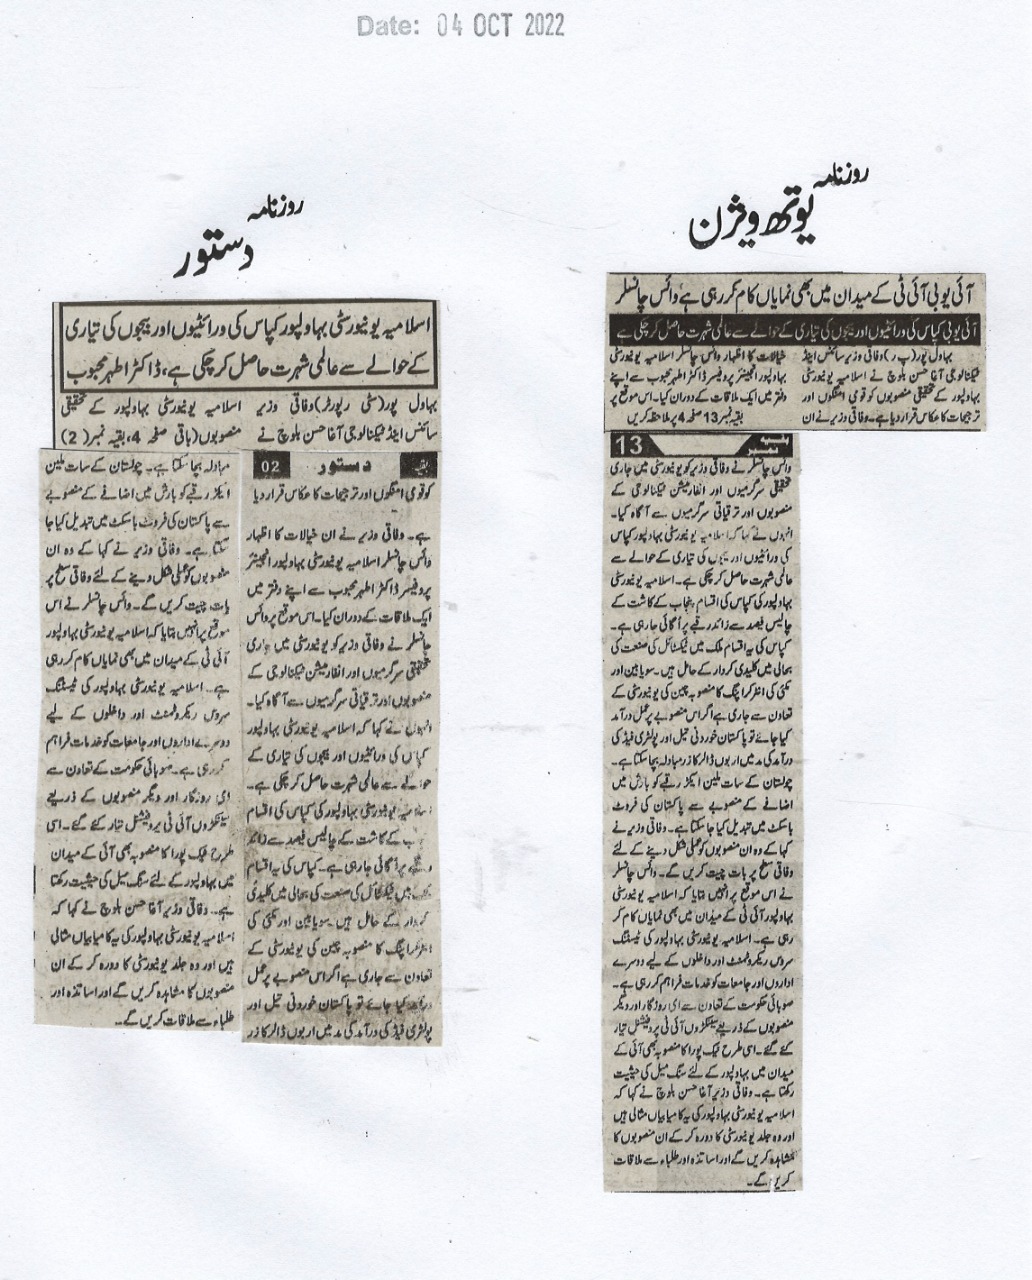 Date: 04 OCT 2022
روزنامہ
یوتھ ویژن
آئی یو بی آئی ٹی کے میدان میں بھی نمایاں کام کر رہی ہے وائس چانسلر
آئی یو بی کپاس کی ورائٹیوں اور بیجوں کی تیاری کے حوالے سے عالمی شہرت حاصل کر چکی ہے
بہاول پور (پ ر) وفاقی وزیر سائنس اینڈ
ٹیکنالوجی آغا حسن بلوچ نے اسلامیہ یونیورسٹی
بہاولپور کے تحقیقی منصوبوں کو قومی امنگوں اور
ترجیحات کا عکاس قرار دیا ہے۔ وفاقی وزیر نے ان
خیالات کا اظہار وائس چانسلر اسلامیہ یونیورسٹی
بہاولپور انجینئر پروفیسر ڈاکٹر اطہر محبوب سے اپنے
دفتر میں ایک ملاقات کے دوران کیا۔ اس موقع پر
بقیہ نمبر 13 صفحہ 4 پر ملاحظہ کریں
بقیہ نمبر 13
وائس چانسلر نے وفاقی وزیر کو یونیورسٹی میں جاری
تحقیقی سرگرمیوں اور انفارمیشن ٹیکنالوجی کے
منصوبوں اور ترقیاتی سرگرمیوں سے آگاہ کیا۔
انہوں نے کہا کہ اسلامیہ یونیورسٹی بہاولپور کپاس
کی ورائٹیوں اور بیجوں کی تیاری کے حوالے سے
عالمی شہرت حاصل کر چکی ہے۔ اسلامیہ یونیورسٹی
بہاولپور کی کپاس کی اقسام پنجاب کے کاشت کے
چالیس فیصد سے زائد رقبے پر اُگائی جا رہی ہے۔
کپاس کی یہ اقسام ملک میں ٹیکسٹائل کی صنعت کی
بحالی میں کلیدی کردار کے حامل ہیں۔ سویابین اور
مکئی کی انٹرکراپنگ کا منصوبہ چین کی یونیورسٹی کے
تعاون سے جاری ہے اگر اس منصوبے پر عمل درآمد
کیا جائے تو پاکستان خوردنی تیل اور پولٹری فیڈ کی
درآمد کی مد میں اربوں ڈالر کا زر مبادلہ بچا سکتا ہے۔
چولستان کے سات ملین ایکڑ رقبے کو بارش میں
اضافے کے منصوبے سے پاکستان کی فروٹ
باسکٹ میں تبدیل کیا جا سکتا ہے۔ وفاقی وزیر نے
کہا کے وہ ان منصوبوں کو عملی شکل دینے کے لئے
وفاقی سطح پر بات چیت کریں گے۔ وائس چانسلر
نے اس موقع پر انہیں بتایا کہ اسلامیہ یونیورسٹی
بہاولپور آئی ٹی کے میدان میں بھی نمایاں کام کر
رہی ہے۔ اسلامیہ یونیورسٹی بہاولپور کی ٹیسٹنگ
سروس ریکروٹمنٹ اور داخلوں کے لیے دوسرے
اداروں اور جامعات کو خدمات فراہم کر رہی ہے۔
صوبائی حکومت کے تعاون سے ای روزگار اور دیگر
منصوبوں کے ذریعے سینکڑوں آئی ٹی پروفیشنل تیار
کئے گئے۔ اسی طرح ٹیک پورا کا منصوبہ بھی آئی کے
میدان میں بہاولپور کے لئے سنگ میل کی حیثیت
رکھتا ہے۔ وفاقی وزیر آغا حسن بلوچ نے کہا کہ
اسلامیہ یونیورسٹی بہاولپور کی یہ کامیابیاں مثالی ہیں
اور وہ جلد یونیورسٹی کا دورہ کر کے ان منصوبوں کا
مشاہدہ کریں گے اور اساتذہ اور طلباء سے ملاقات
کریں گے۔
روزنامہ
دستور
اسلامیہ یونیورسٹی بہاولپور کپاس کی ورائٹیوں اور بیجوں کی تیاری
کے حوالے سے عالمی شہرت حاصل کر چکی ہے، ڈاکٹر اطہر محبوب
بہاول پور (سٹی رپورٹر) وفاقی وزیر
سائنس اینڈ ٹیکنالوجی آغا حسن بلوچ نے
اسلامیہ یونیورسٹی بہاولپور کے تحقیقی
منصوبوں (باقی صفحہ 4، بقیہ نمبر 2)
بقیہ دستور 02
کو قومی امنگوں اور ترجیحات کا عکاس قرار دیا
ہے۔ وفاقی وزیر نے ان خیالات کا اظہار
وائس چانسلر اسلامیہ یونیورسٹی بہاولپور انجینئر
پروفیسر ڈاکٹر اطہر محبوب سے اپنے دفتر میں
ایک ملاقات کے دوران کیا۔ اس موقع پر وائس
چانسلر نے وفاقی وزیر کو یونیورسٹی میں جاری
تحقیقی سرگرمیوں اور انفارمیشن ٹیکنالوجی کے
منصوبوں اور ترقیاتی سرگرمیوں سے آگاہ کیا۔
انہوں نے کہا کہ اسلامیہ یونیورسٹی بہاولپور
کپاس کی ورائٹیوں اور بیجوں کی تیاری کے
حوالے سے عالمی شہرت حاصل کر چکی ہے۔
اسلامیہ یونیورسٹی بہاولپور کی کپاس کی اقسام
کے کاشت کے چالیس فیصد سے زائد
رقبے پر اُگائی جا رہی ہے۔ کپاس کی یہ اقسام
ملک میں ٹیکسٹائل کی صنعت کی بحالی میں کلیدی
کردار کے حامل ہیں سویابین اور مکئی کی
انٹرکراپنگ کا منصوبہ چین کی یونیورسٹی کے
تعاون سے جاری ہے اگر اس منصوبے پر عمل
درآمد کیا جائے تو پاکستان خوردنی تیل اور
پولٹری فیڈ کی درآمد کی مد میں اربوں ڈالر کا زر
مبادلہ بچا سکتا ہے۔ چولستان کے سات ملین
ایکڑ رقبے کو بارش میں اضافے کے منصوبے
سے پاکستان کی فروٹ باسکٹ میں تبدیل کیا جا
سکتا ہے۔ وفاقی وزیر نے کہا کے وہ ان
منصوبوں کو عملی شکل دینے کے لئے وفاقی سطح پر
بات چیت کریں گے۔ وائس چانسلر نے اس
موقع پر انہیں بتایا کہ اسلامیہ یونیورسٹی بہاولپور
آئی ٹی کے میدان میں بھی نمایاں کام کر رہی
ہے۔ اسلامیہ یونیورسٹی بہاولپور کی ٹیسٹنگ
سروس ریکروٹمنٹ اور داخلوں کے لیے
دوسرے اداروں اور جامعات کو خدمات فراہم
کر رہی ہے۔ صوبائی حکومت کے تعاون سے
ای روزگار اور دیگر منصوبوں کے ذریعے
سینکڑوں آئی ٹی پروفیشنل تیار کئے گئے۔ اسی
طرح ٹیک پورا کا منصوبہ بھی آئی کے میدان
میں بہاولپور کے لئے سنگ میل کی حیثیت رکھتا
ہے۔ وفاقی وزیر آغا حسن بلوچ نے کہا کہ
اسلامیہ یونیورسٹی بہاولپور کی یہ کامیابیاں مثالی
ہیں اور وہ جلد یونیورسٹی کا دورہ کر کے ان
منصوبوں کا مشاہدہ کریں گے اور اساتذہ اور
طلباء سے ملاقات کریں گے۔